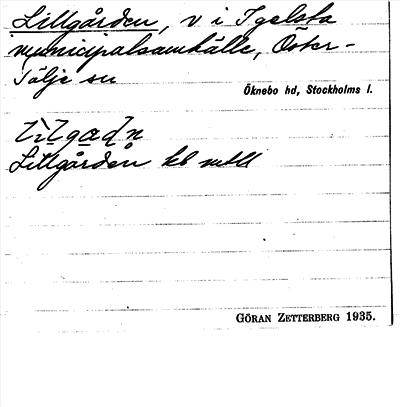 Lillgården, v i Igelsta
municipalsamhälle, Öster-
Tälje sn
Öknebo hd, Stockholms l.
Lillgården kb mtl
GÖRAN ZETTERBERG 1935.